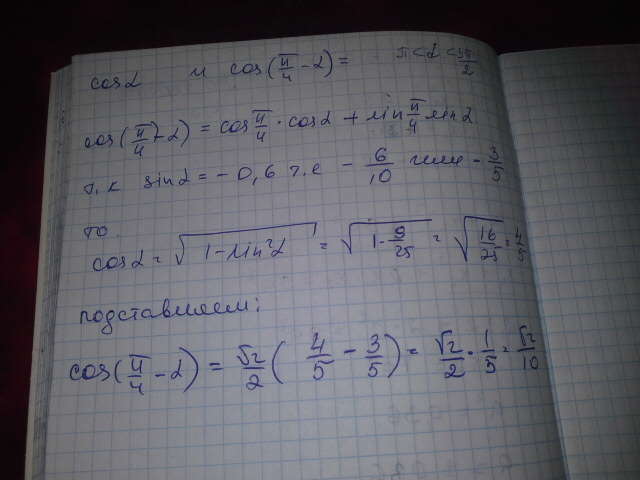 cosα и cos(π/4 - α) = π<α<3π/2
cos(π/4 - α) = cos π/4 · cosα + sin π/4 sinα
т.к sinα = -0,6 т.е - 6/10 или - 3/5
то
cosα = √(1-sin²α) = √(1-9/25) = √(16/25) = 4/5
подставляем:
cos(π/4 - α) = √2/2 (4/5 - 3/5) = √2/2 · 1/5 = √2/10